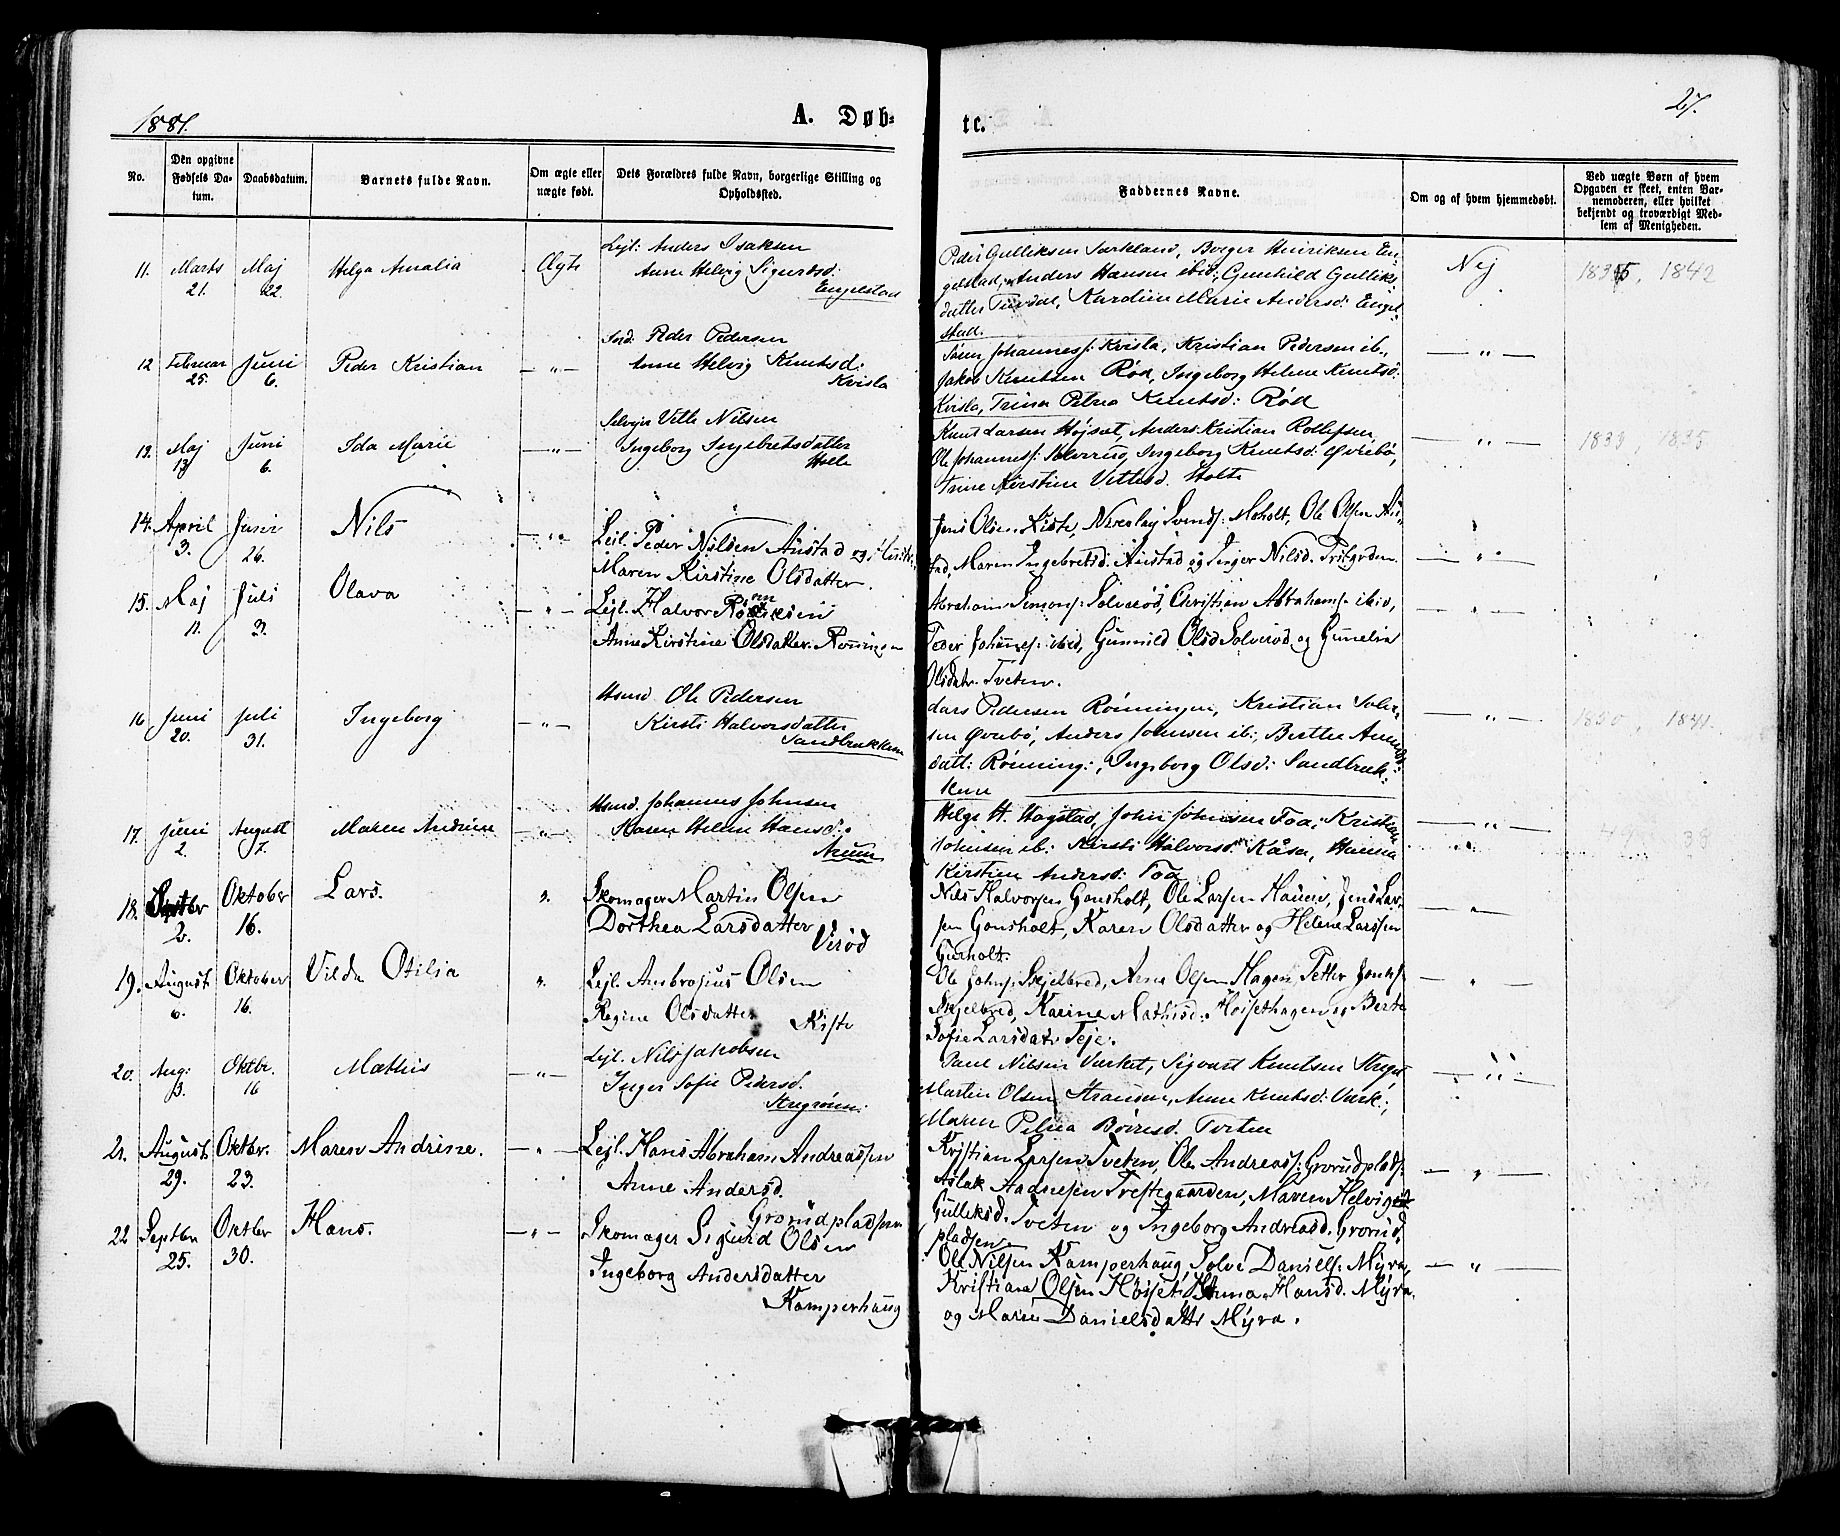 1881.
A. Døb-
te.
27.
No.
Den opgivne Fødsels Datum.
Daabsdatum.
Barnets fulde Navn.
Om ægte eller uægte født.
Dets Forældres fulde Navn, borgerlige Stilling og Opholdssted.
Faddernes Navne.
Om og af hvem hjemmedøbt.
Ved uægte Børn af hvem Opgaven er skeet, enten Barnemoderen, eller hvilket bekjendt og troværdigt Medlem af Menigheden.
11. Marts 21. Maj 22. Helga Amalia Ægte
Lejl: Anders Isaksen
Anne Helvig Sigurdsd:
Engelstad
Peder Gulliksen Sørkland, Borger Henriksen En-
gelstad, Anders Hansen ibid; Gunhild Gulliks-
datter Tufdal, Karoline Marie Andersd: Engel-
stad.
Nej
1835, 1842
12 Februar 25. Juni 6. Peder Kristian — " —
Ind. Peder Pedersen
Anne Helvig Knutsd:
Kvisla
Søren Johannesf: Kvisla, Kristian Pedersen ib.,
Jakob Knutsen Rød, Ingeborg Helene Knutsd:
Kvisla, Trine Petrea Knutsd: Rød
— " —
13. Maj 13. Juni 6. Ida Marie — " —
Selvejer Vetle Nilsen
Ingeborg Ingebretsdatter
Holte
Knut Larsen Højset, Anders Kristian Rollefsen,
Ole Johannesf: Solverød, Ingeborg Knutsd: Øvrebø,
Trine Kirstine Vetlesd. Holte
— " —
1833, 1835
14. April 3. Juni 26. Nils — " —
Lejl. Peder Nilsen Austad og Hustr.
Maren Kirstine Olsdatter.
Jens Olsen Kiste, Nirenlaj Svendsf: Moholt, Ole Olsen Au-
stad, Maren Ingebretsd. Austad og Inger Nilsd.
— " —
15. Maj 11. Juli 3. Olava — " —
Lejl. Halvor
Anne Kirstine Olsdatter. Rønningen
Abraham Simonsf: Solverød, Christian Abrahamsf. ibid,
Peder Johannesf: ibid, Gunnild Olsd Solverød og Gunelia
Olsdatr. Tveten.
— " —
16 Juni 20. Juli 31. Ingeborg — " —
Husmd Ole Pedersen
Kirsti Halvorsdatter
Sandbrækken
Lars Pedersen Rønningen, Kristian
Øvrebø, Anders Johnsen ib:, Berthe Amunds-
datt: Rønning:, Ingeborg Olsd: Sandbræk-
ken
— " —
1850, 1841
17. Juni 2. August 7. Maren Andrine — " —
Husmd. Johannes Johnsen
Karen Helene Hansd:
Helge H. Hogstad, John Johnsen Foa; Kristian
Johnsen ib: Kirsti Halvorsd: Kåsa, Hanna
Kirstien Andersd: Foa
— " —
18. Septbr 2. Oktober 16. Lars. "
Skomager Martin Olsen
Dorthea Larsdatter
Virød
Nils Halvorsen Gonsholt, Ole Larsen Haukn, Jens Lar-
sen Gonsholt, Karen Olsdatter og Helene Larssen
Gusholt.
— " —
19. August 6. Oktober 16. Vilda Otilia "
Lejl. Ambrosius Olsen
Regine Olsdatter
Kiste
Ole Johnsf: Skjelbred, Arne Olsen Hagen, Petter Jonsf
Skjelbred, Karine Mathisd: Højsethagen og Berte
Sofie Larsdatr. Teje.
"
20. Aug: 3. Oktbr. 16 Mathis — " —
Lejl. Nils Jakobsen
Inger Sofie Pedersd.
Paul Nilsen Værket, Sigvart Knutsen
Martin Olsen Anne Knutsd: Værk:,
Maren Petrea Børresd. Tveten
"
21. August 29. Oktbr. 23. Maren Andrine. — " —
Lejl. Hans Abraham Andreassen
Anne Andersd.
Grorudpladsen
Kristian Larsen Tveten, Ole Andreasf: Grorudpladsf:
Aslak Aadnesen Præstegaarden, Maren Helvig
Gulleksd. Tveten og Ingeborg Andreasd. Grorud-
pladsen
— " —
22 Septbr 25. Oktbr 30. Hans. — " —
Skomager Sigurd Olsen
Ingeborg Andersdatter
Kamperhaug
Ole Nilsen Kamperhaug, Solve Danielsf: Myra,
Kristian Olsen Højset, Anna Hansd. Myra.
og Maren Danielsdatter Myra.
— " —